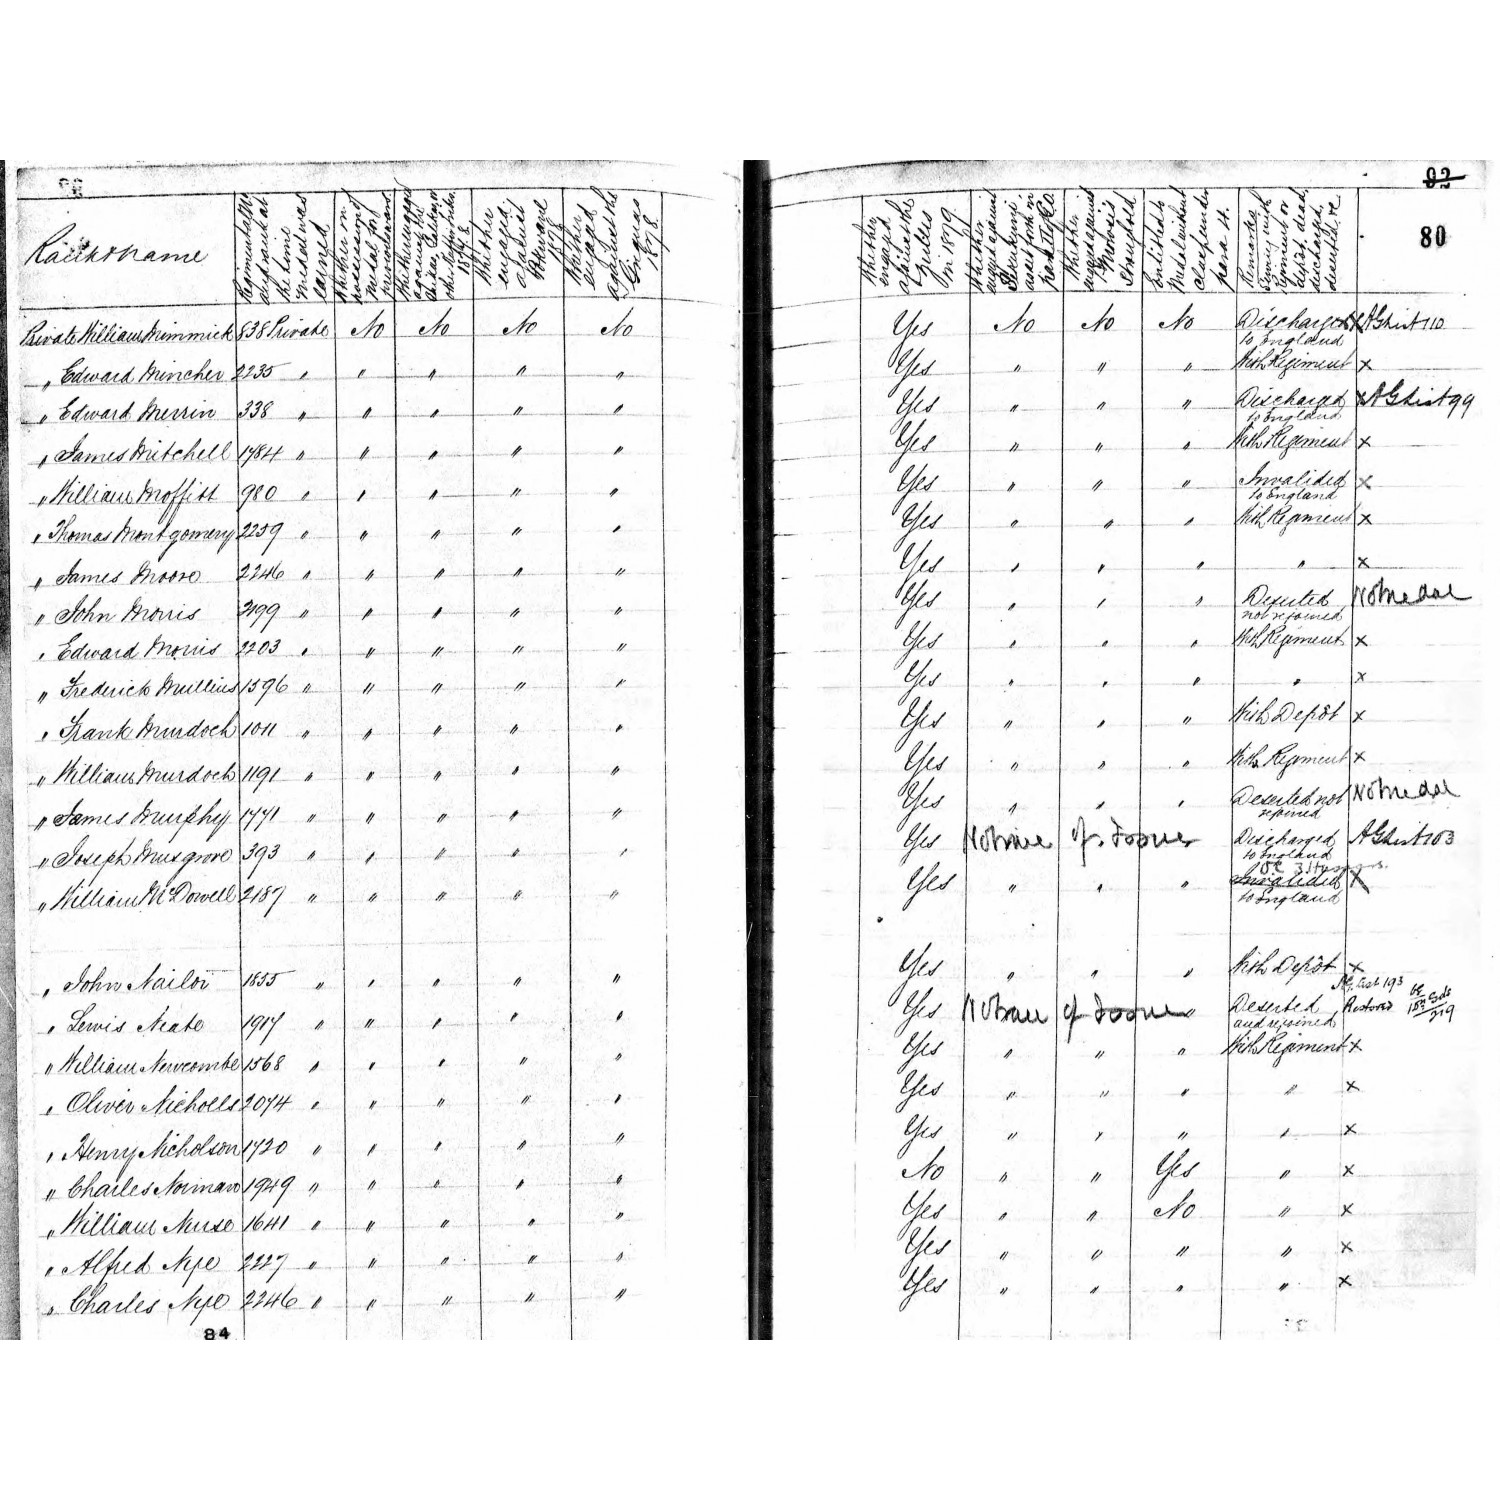 92
80
Rank & Name
Regimental No and rank at the time Medal was earned
Whether in possession of Medal for previous wars
Whether engaged against the Gaikas, Galekas or other Kaffir tribes 1877-8
Whether engaged against Pokwane 1878
Whether engaged against the Griquas 1878
Whether engaged against the Zulus in 1879
Whether engaged against Sekukuni
Whether engaged against Moirosi's Stronghold
Entitled to Medal without clasp under para 4.
Remarks serving with regiment or depôt, dead, discharged, deserted, &c
Private William Minnick 838 Private No No No No Yes No No No Discharged to England X AG List 110
" Edward Mincher 2235 " " " " " Yes " " " With Regiment x
" Edward Merrin 338 " " " " " Yes " " " Discharged to England x AG List 99
" James Mitchell 1784 " " " " " Yes " " " With Regiment x
" William Moffitt 980 " " " " " Yes " " " Invalided to England x
" Thomas Montgomery 2259 " " " " " Yes " " " With Regiment x
" James Moore 2246 " " " " " Yes " " " " x
" John Morris 2199 " " " " " Yes " " " Deserted not rejoined No Medal
" Edward Morris 2203 " " " " " Yes " " " With Regiment x
" Frederick Mullins 1596 " " " " " Yes " " " " x
" Frank Murdoch 1011 " " " " " Yes " " " With Depôt x
" William Murdoch 1191 " " " " " Yes " " " With Regiment x
" James Murphy 1771 " " " " " Yes " " " Deserted not rejoined No Medal
" Joseph Musgrove 393 " " " " " Yes No trace of issue Discharged to England AG List 103
" William McDowell 2187 " " " " " Yes " " " Invalided to England x
" John Nailor 1855 " " " " " Yes " " " With Depôt x
" Lewis Neate 1917 " " " " " Yes No trace of issue " Deserted and rejoined AG List 193 Restored
" William Newcombe 1568 " " " " " Yes " " " With Regiment x
" Oliver Nicholls 2074 " " " " " Yes " " " " x
" Henry Nicholson 1720 " " " " " Yes " " " " x
" Charles Norman 1949 " " " " " No " " Yes " x
" William Nurse 1641 " " " " " Yes " " No " x
" Alfred Nye 2227 " " " " " Yes " " " " x
" Charles Nye 2246 " " " " " Yes " " " " x
84